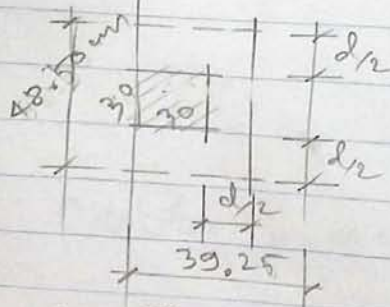 48.50 cm
d/2
30
30
d/2
d/2
39.25